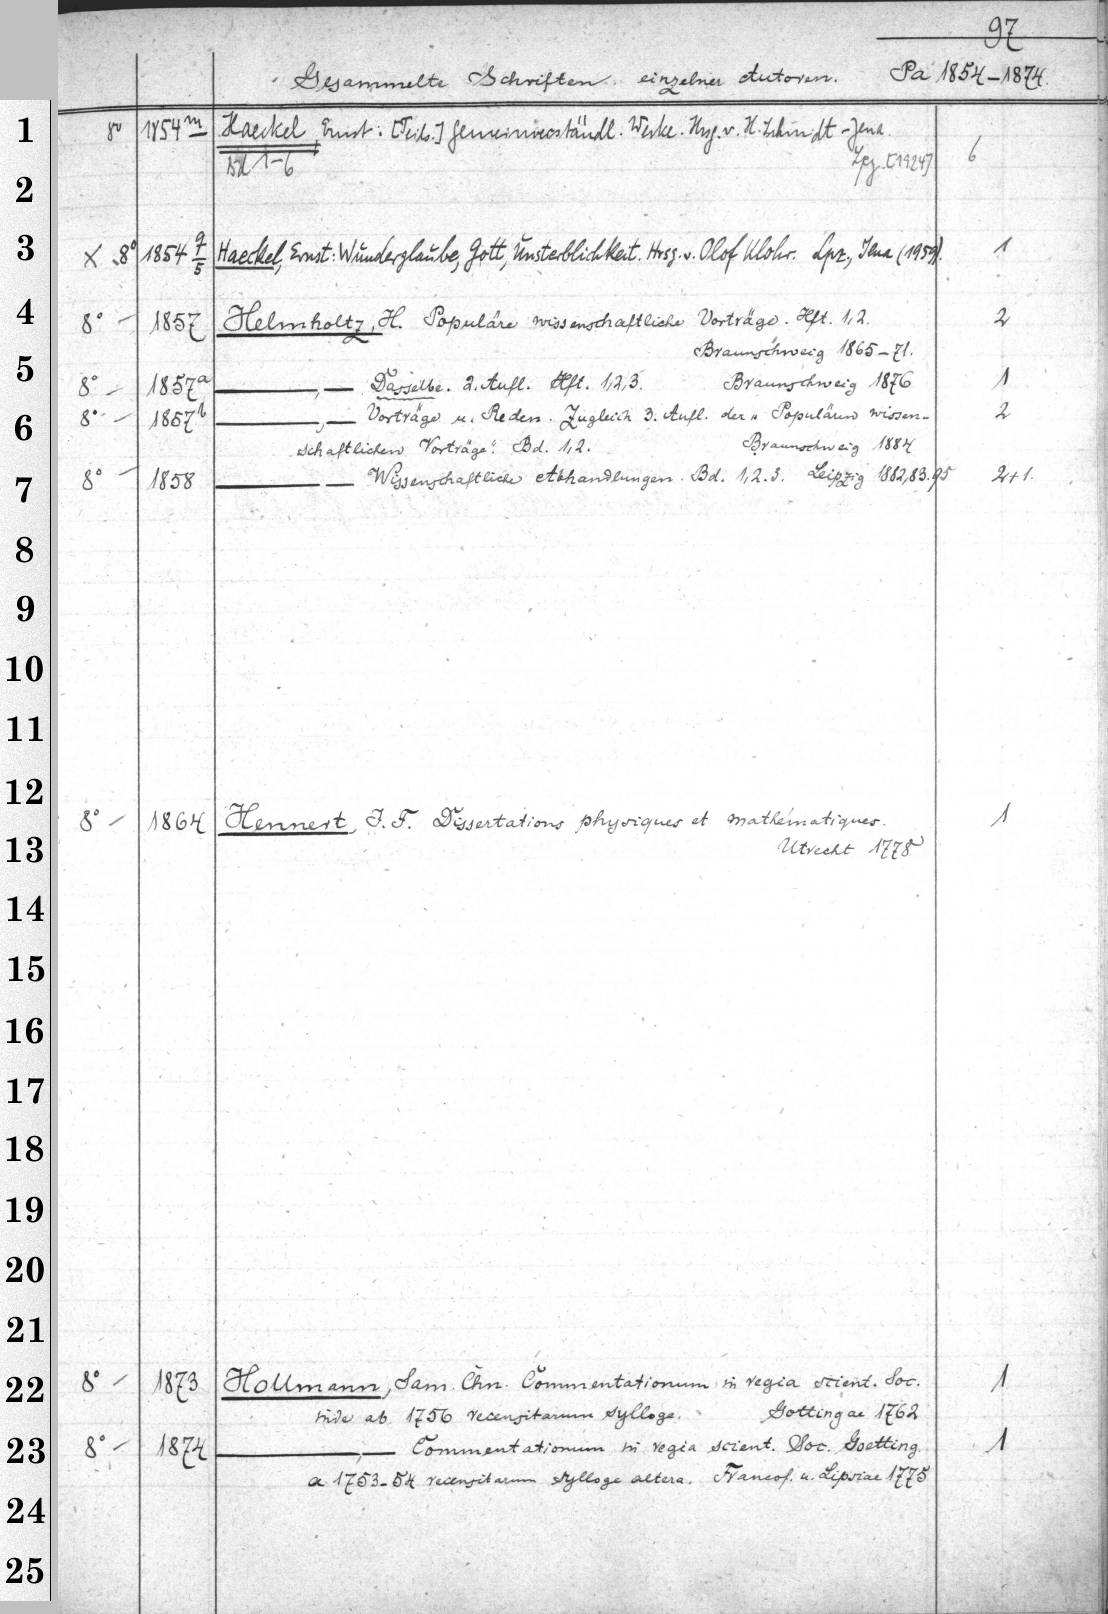 97
Gesammelte Schriften einzelner Autoren. Pa 1854-1874.
1 8° 1854 m Haeckel, Ernst: [Teils.] Gemeinverständl. Werke. Hrsg. v. H. Schmidt-Jena.
Bd 1-6 Lpz. [1924] 6
2
3 X 8° 1854 q/5 Haeckel, Ernst: Wunderglaube, Gott, Unsterblichkeit. Hrsg. v. Olof Klohr. Lpz., Jena (1959). 1
4 8° - 1857 Helmholtz, H. Populäre wissenschaftliche Vorträge. Hft. 1,2. 2
Braunschweig 1865-71.
5 8° - 1857a —,— Dasselbe. 2. Aufl. Hft. 1,2,3. Braunschweig 1876 1
6 8° - 1857b —,— Vorträge u. Reden. Zugleich 3. Aufl. der „Populären wissen-
schaftlichen Vorträge". Bd. 1,2. Braunschweig 1884 2
7 8° - 1858 — — Wissenschaftliche Abhandlungen. Bd. 1,2.3. Leipzig 1882,83.95 2+1.
8
9
10
11
12
8° - 1864 Hennert, J. F. Dissertations physiques et mathématiques. 1
13 Utrecht 1778
14
15
16
17
18
19
20
21
22 8° - 1873 Hollmann, Sam. Chn. Commentationum in regia scient. Soc. 1
inde ab 1756 recensitarum sylloge. Gottingae 1762
23 8° - 1874 —,— Commentationum in regia scient. Soc. Goetting. 1
a 1753-54 recensitarum sylloge altera. Francof. u. Lipsiae 1775
24
25